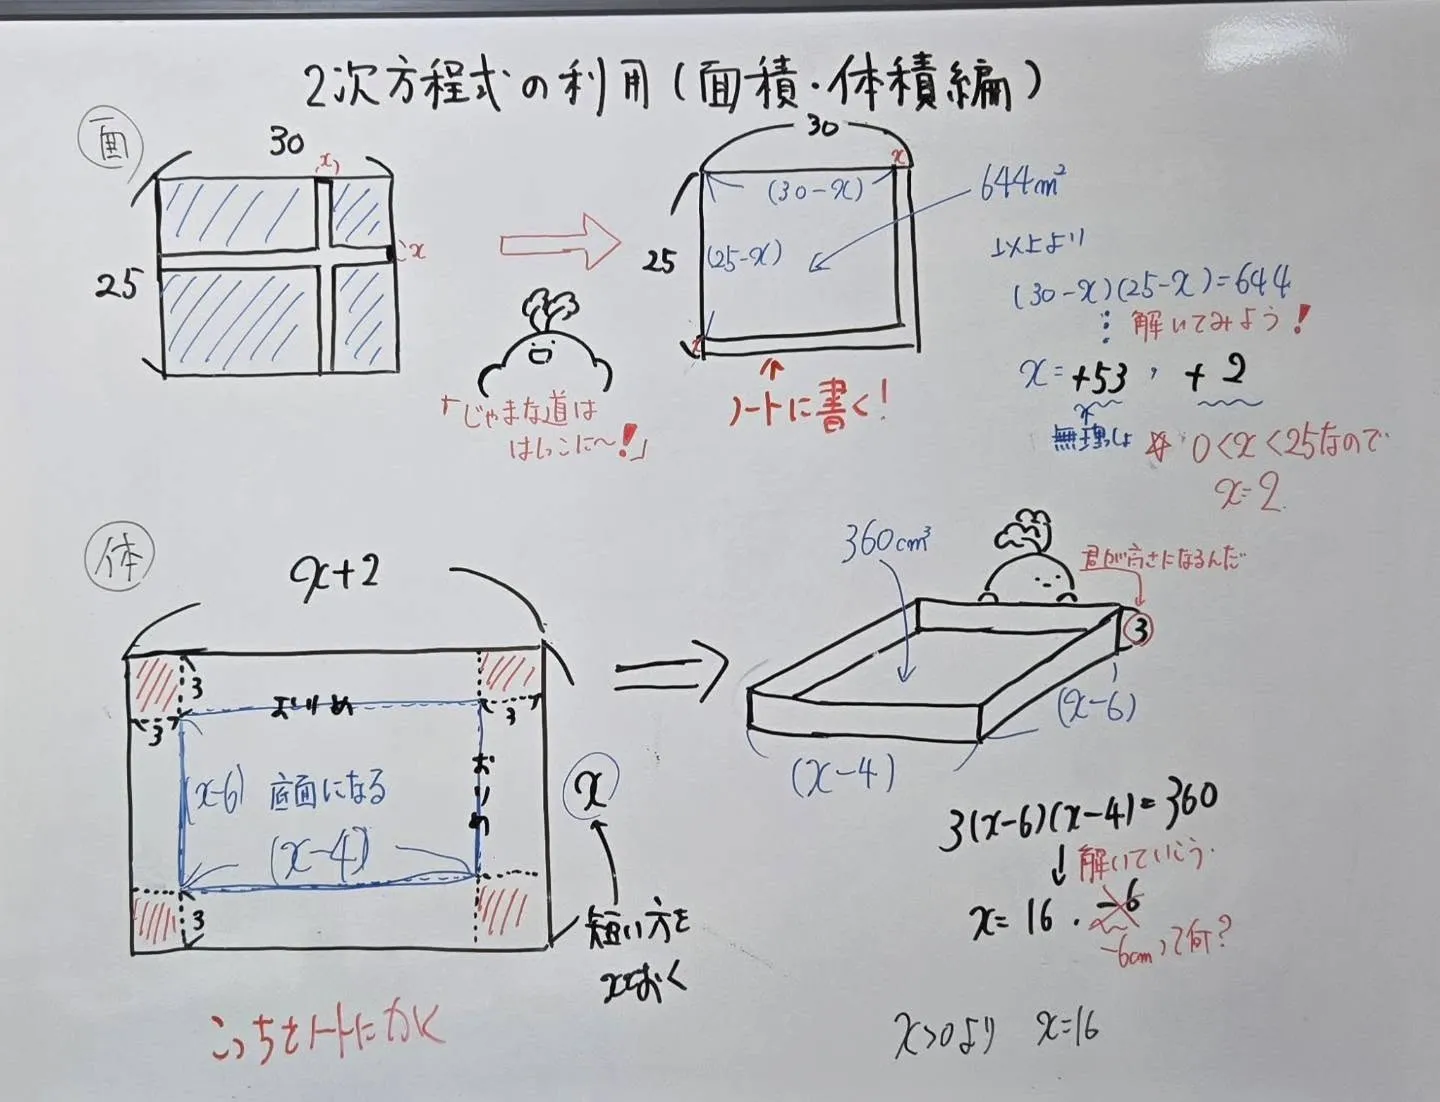 2次方程式の利用(面積・体積編)
面
30
x
x
25
「じゃまな道は
はしっこに〜!」
30
x
(30-x)
25
(25-x)
x
644m²
ノートに書く!
以上より
(30-x)(25-x)=644
解いてみよう!
x=+53, +2
無理っしょ
0<x<25なので
x=2
体
x+2
3
3
おりめ
3
(x-6)
底面になる
おりめ
(x-4)
3
x
短い方を
xとおく
こっちをノートにかく
360cm³
君が高さになるんだ
3
(x-6)
(x-4)
3(x-6)(x-4)=360
解いていこう
x=16.-6
-6cmって何?
x>0より x=16